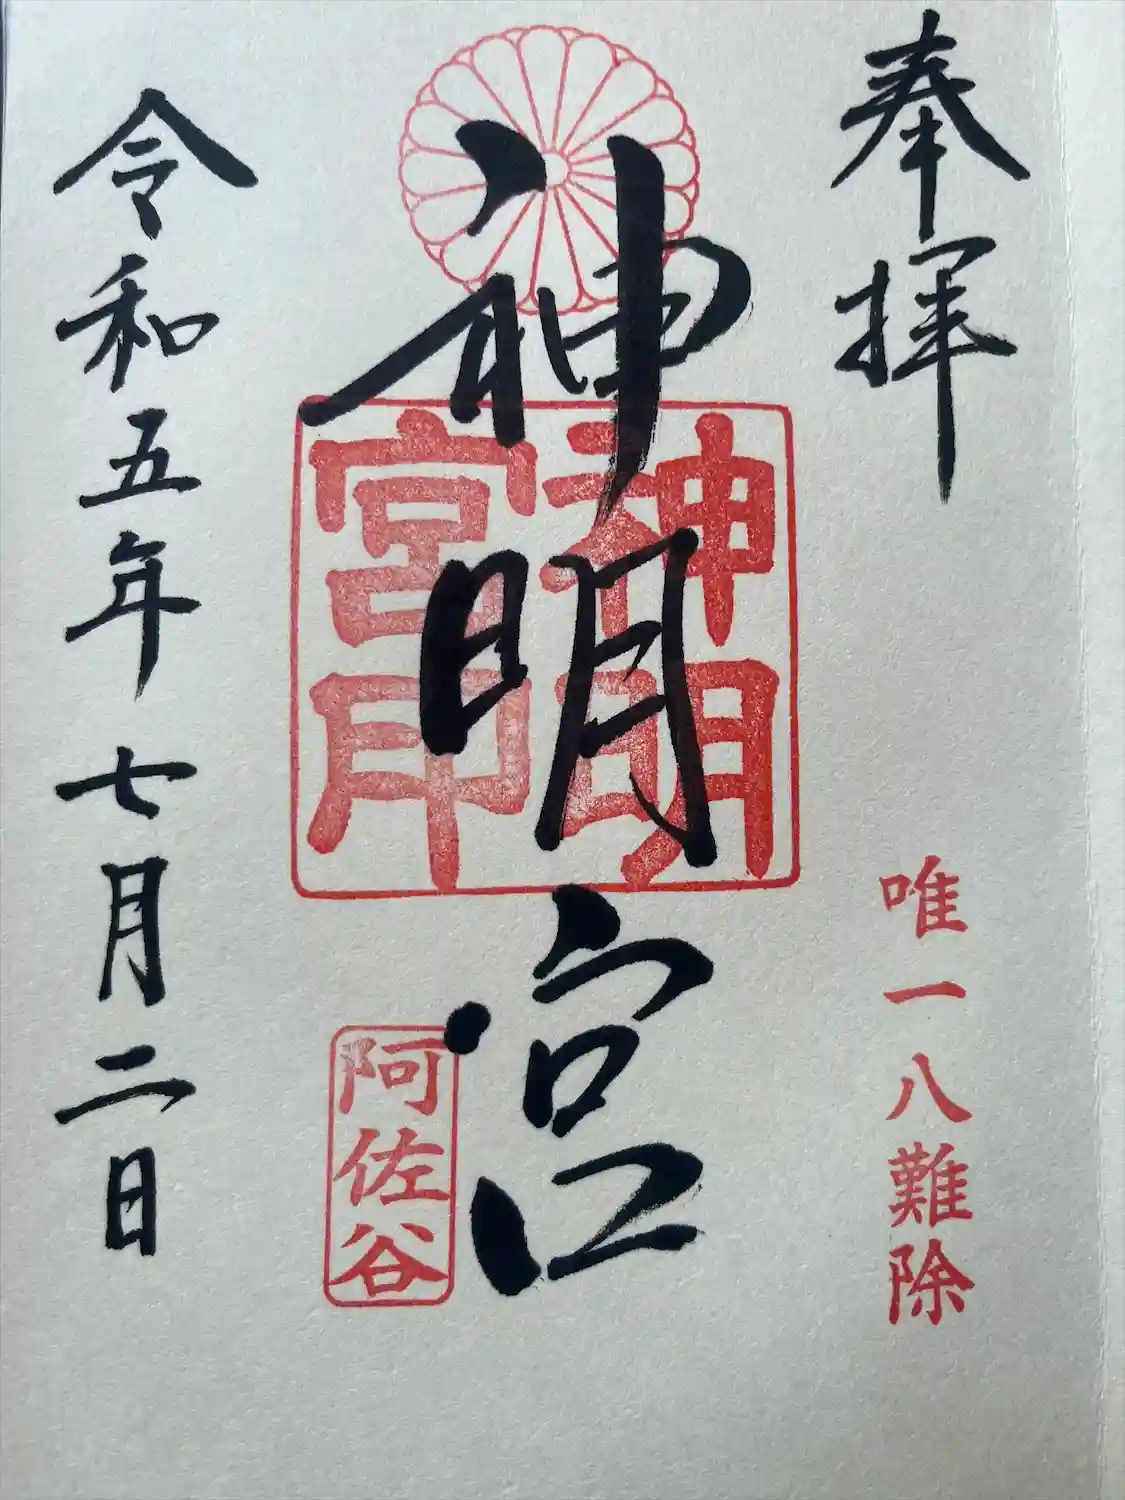 奉拝
唯一八難除
神明宮
神明
宮印
阿佐谷
令和五年 七月二日